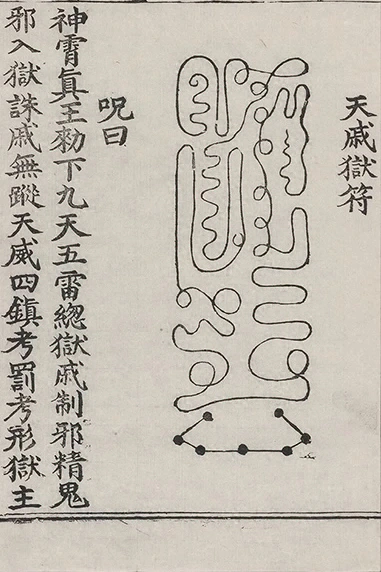 天戚獄符
呪曰
神霄眞王勑下九天五雷緫獄戚制邪精鬼
邪入獄誅戚無蹤天威四鎮考罰考形獄主